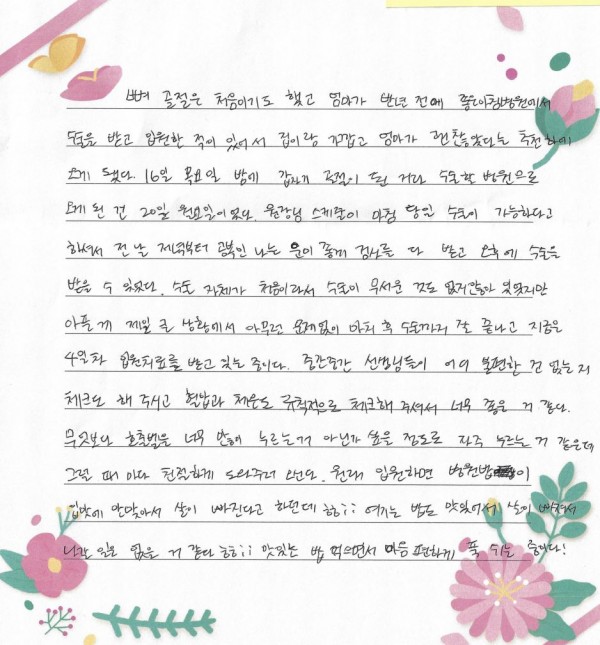 뼈 골절은 처음이기도 했고 엄마가 반년 전에 좋아침병원에서
수술을 받고 입원한 적이 있어서 집이랑 가깝고 엄마가 괜찮았다는 추천하에
오게 됐다. 16일 목요일 밤에 갑자기 골절이 된 거라 수술할 병원으로
오게 된 건 20일 월요일이었다. 원장님 스케줄이 마침 당일 수술이 가능하다고
하셔서 전날 저녁부터 공복인 나는 운이 좋게 검사를 다 받고 오후에 수술을
받을 수 있었다. 수술 자체가 처음이라서 수술이 무서운 것도 없지않아 있었지만
아픈 게 제일 큰 상황에서 아무런 문제없이 마취 후 수술까지 잘 끝나고 지금은
4일차 입원치료를 받고 있는 중이다. 중간중간 선생님들이 어디 불편한 건 없는지
체크도 해 주시고 혈압과 체온도 규칙적으로 체크해 주셔서 너무 좋은 거 같다.
무엇보다 호출벨을 너무 많이 누르는거 아닌가 싶을 정도로 자주 누르는 거 같은데
그럴 때 마다 친절하게 도와주러 오신다. 원래 입원하면 병원밥이
입맛에 안맞아서 살이 빠진다고 하던데 ㅎㅎ;; 여기는 밥도 맛있어서 살이 빠져서
나갈 일은 없을 거 같다 ㅎㅎ;; 맛있는 밥 먹으면서 마음 편하게 푹 쉬는 중이다!